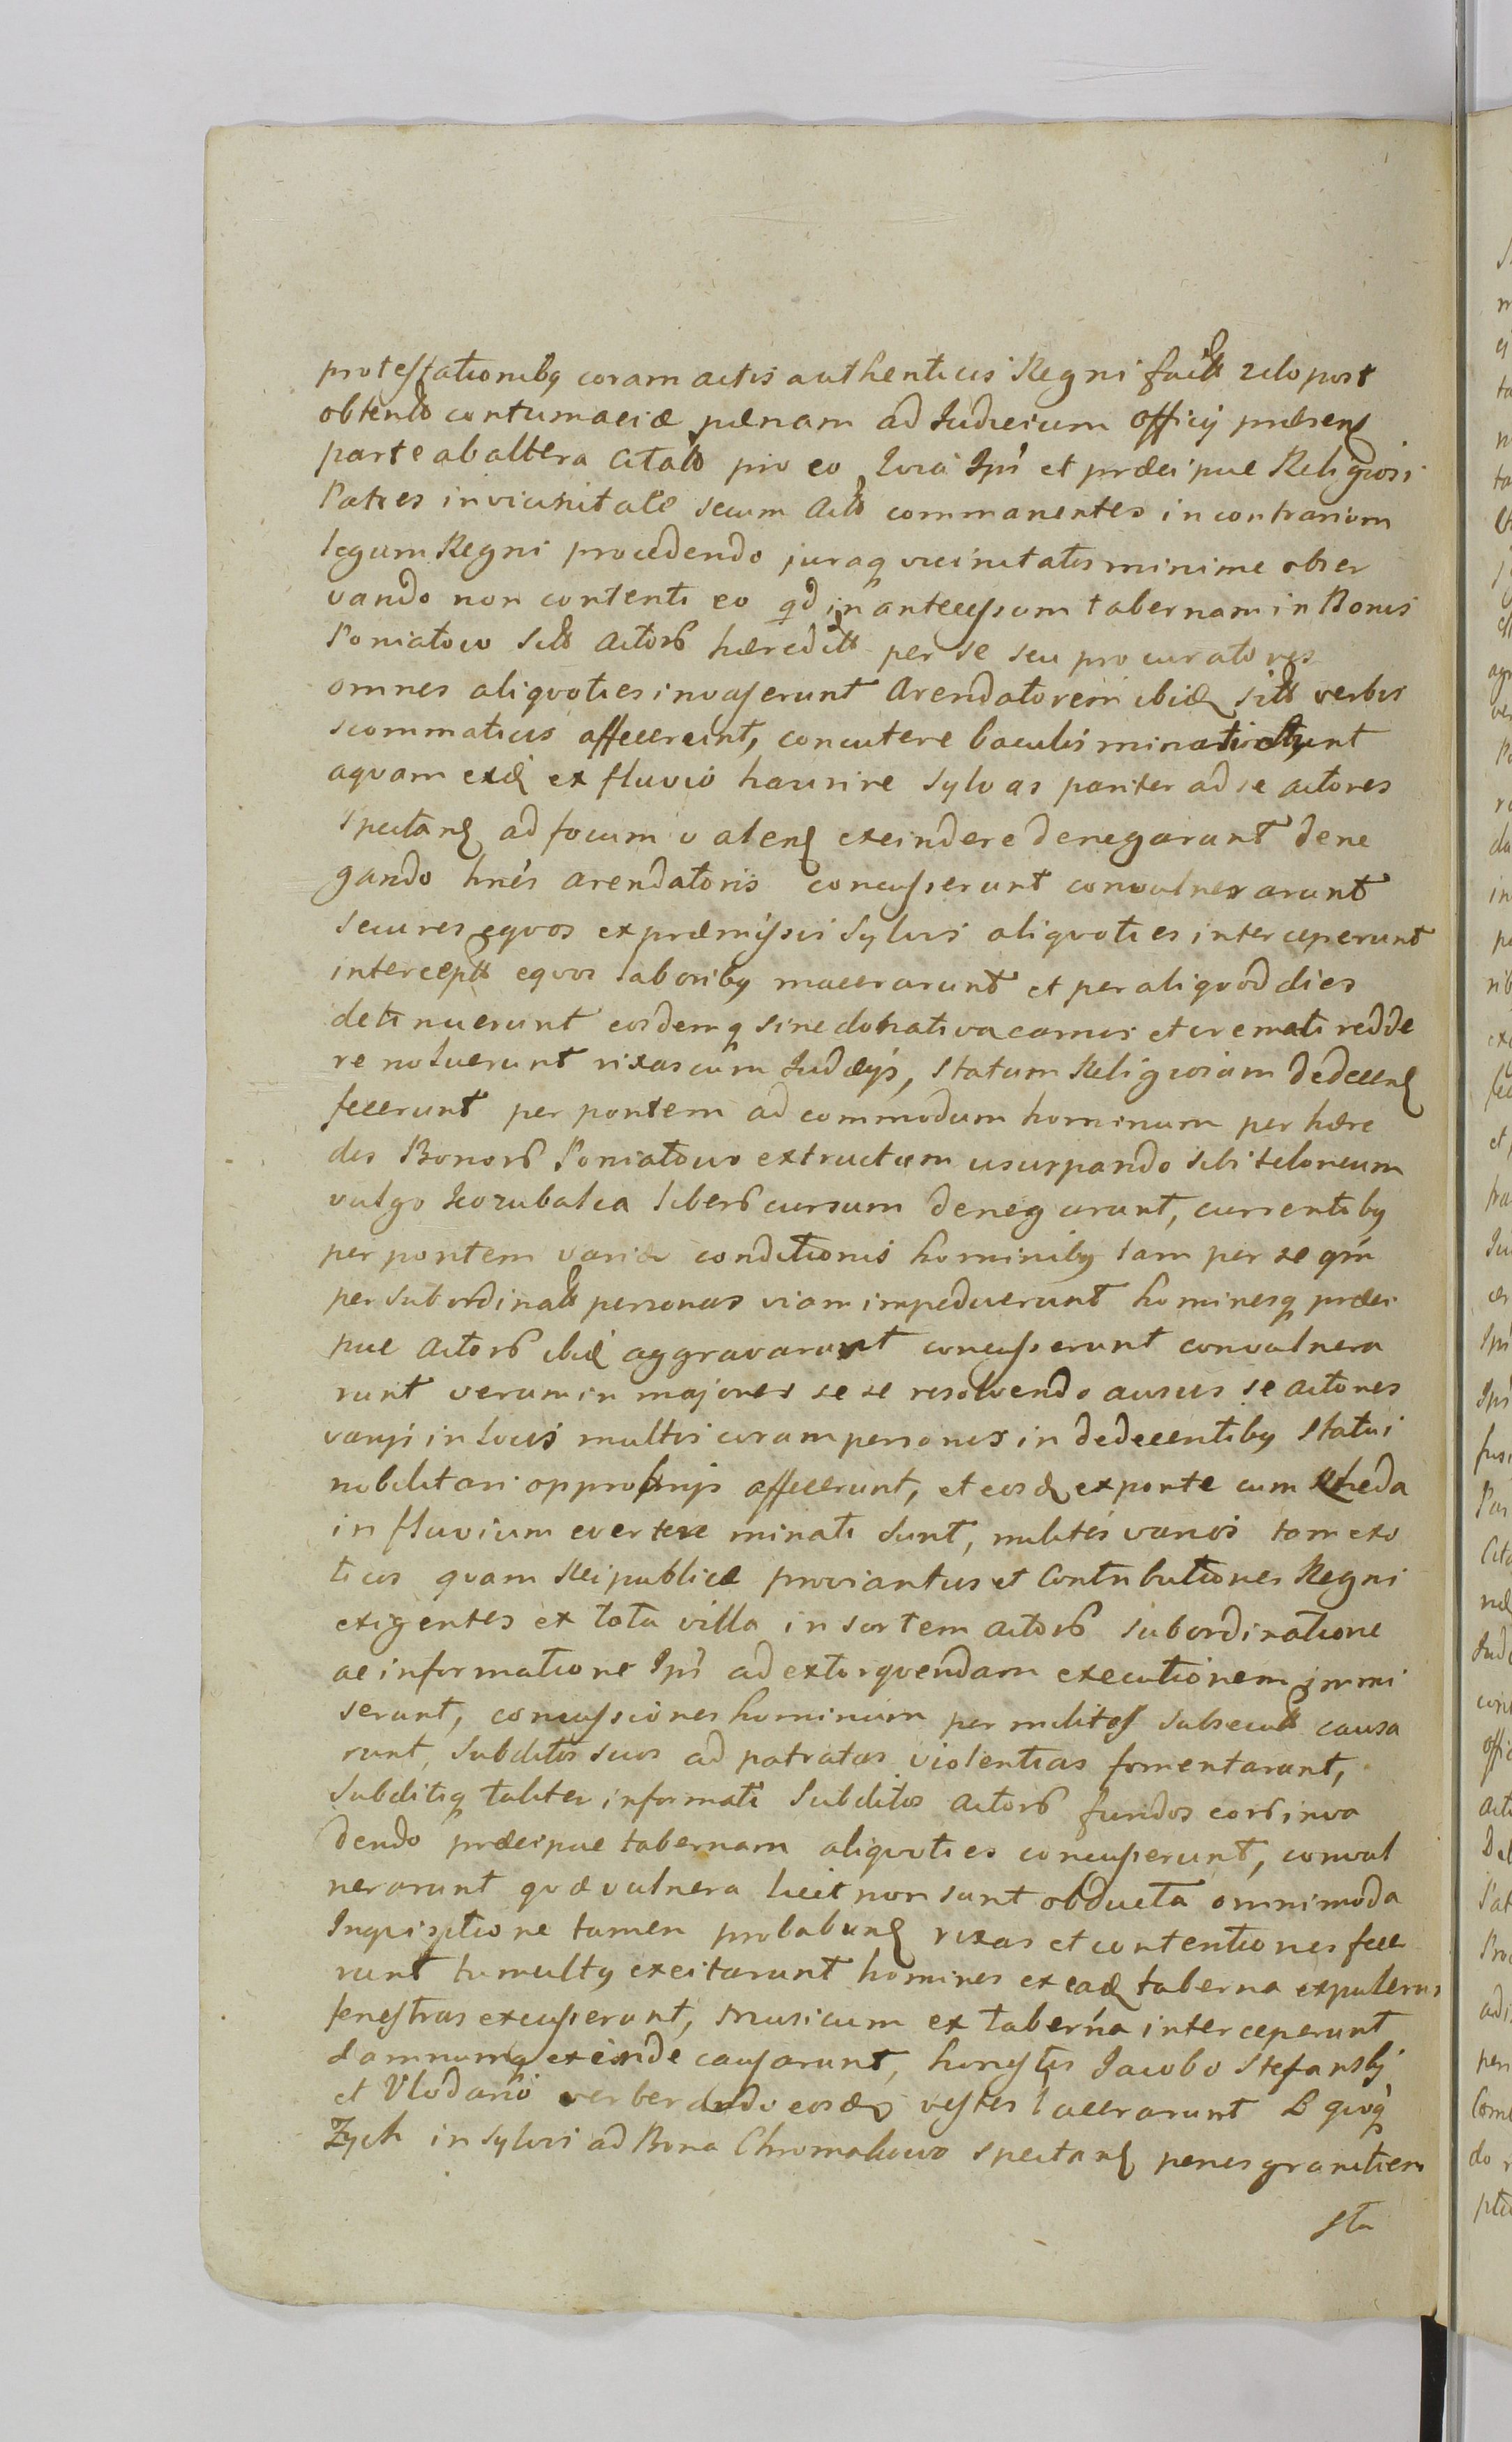 protestationibq coram actis authenticis Regni factt zelo post
obtentt contumaciæ pænam ad Judicium officij præsens
parte ab altera Citatt pro eo, Quia Ipsi et præcipue Religiosi
Patres in vicinitate secum Actt commanentes in contrarium
legum Regni procedendo juraq vicinitatis minime obser
vando non contenti eo qd in antecessum tabernam in Bonis
Poniatowo sitt Actorū hæreditt per se seu procuratores
omnes aliquoties invaserunt Arendatorem ibidē sitt verbis
scommaticis affecerunt, concutere baculis minati sunt
aquam exdē ex fluvio haurire sylvas pariter ad se actores
spectanē ad focum valenē exeindere denegarunt dene
gando hnes arendatoris concusserunt convulnerarunt
secures equos ex præmissis sylvis aliquoties interceperunt
interceptt equos laboribq macerarunt et per aliquod dies
detinuerunt eosdemq sine donativa carnis et cremati redde
re noluerunt rixas cum Judæis, statum Religiosum dedecenē
fecerunt per pontem ad commodum hominum per hære
des Bonorū Poniatowo extructum usurpando sibi teloneum
vulgo liberū cursum denegarunt, currentibq
per pontem variæ conditionis hominibq tam per se qm
per subordinatt personas viam impediverunt hominesq præci
pue Actorū ibidē aggravarunt concusserunt convulnera
runt verum in majores se se resolvendo ausus se actores
varijs in locis multis coram personis in dedecentibq statui
nobilitari opprobrijs affecerunt, et eosdē ex ponte cum rheda
in fluvium evertere minati sunt, milites varios tam exo
ticos quam Reipublicæ proviantus et Contributiones Regni
exigentes ex tota villa in sortem actorū subordinatione
ac informatione Ipsi ad extorquendam executionem immi
serunt, concussiones hominum per milites subsecutt causa
runt, subditos suos ad patratas violentias fomentarunt,
subditiq taliter informati subditos actorū fundos eorū inva
dendo præcipue tabernam aliquoties concusserunt, convul
nerarunt quæ vulnera licet non sunt obducta omnimoda
Inquisitione tamen probabunē rixas et contentiones fece
runt tumultq excitarunt homines ex eadē taberna expulerunt
fenestras excusserunt, musicum ex taberna interceperunt
damnumq exeinde causarunt, honestis Jacobo Stefanski
et Vlodario verberando eosdē vestes lacerarunt L quoq
Zych in sylvis ad Bona Chromakowo spectanē penes granitiem
sta